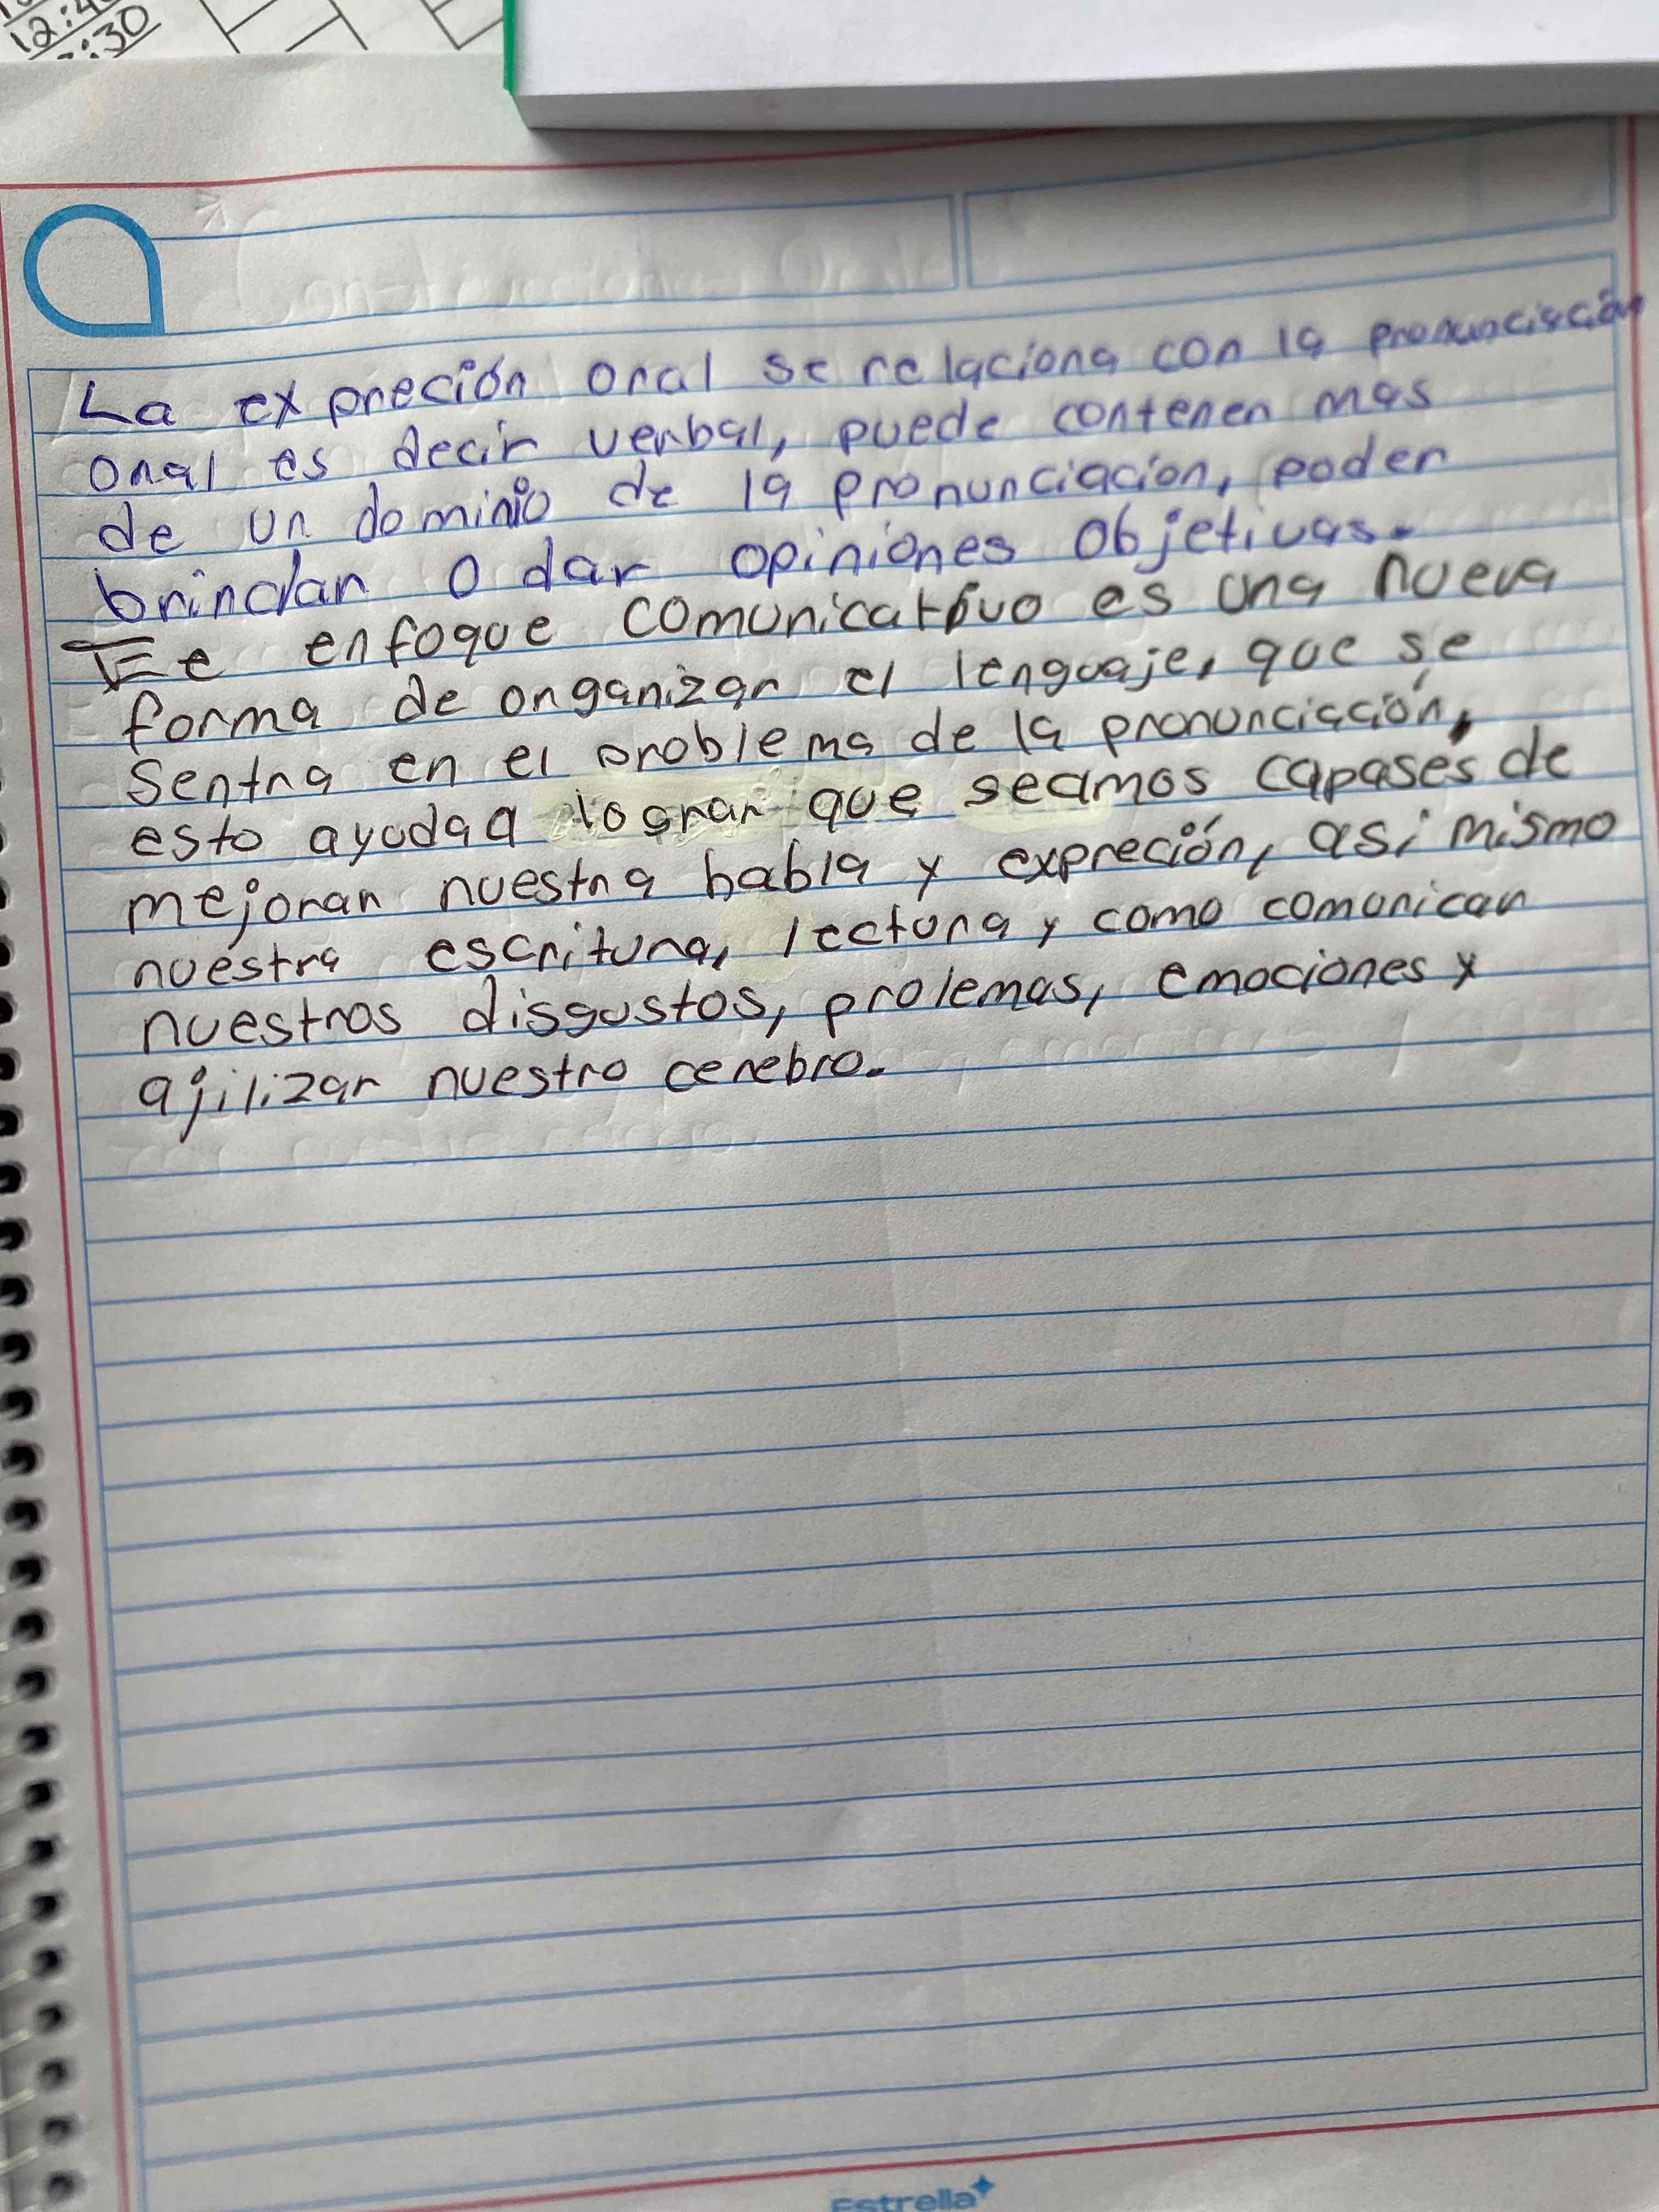 12:4
:30
La expreción oral se relaciona con la pronunciación
oral es decir verbal, puede contener mas
de un dominio de la pronunciacion, poder
brindar o dar opiniones objetivas.
enfoque comunicativo es una nueva
forma de organizar el lenguaje, que se
sentra en el problema de la pronunciación,
esto ayudaa lograr que seamos capases de
mejorar nuestra habla y expreción, asi mismo
nuestra escritura, lectura y como comunicar
nuestros disgustos, prolemas, emociones y
ajilizar nuestro cerebro.
Estrella